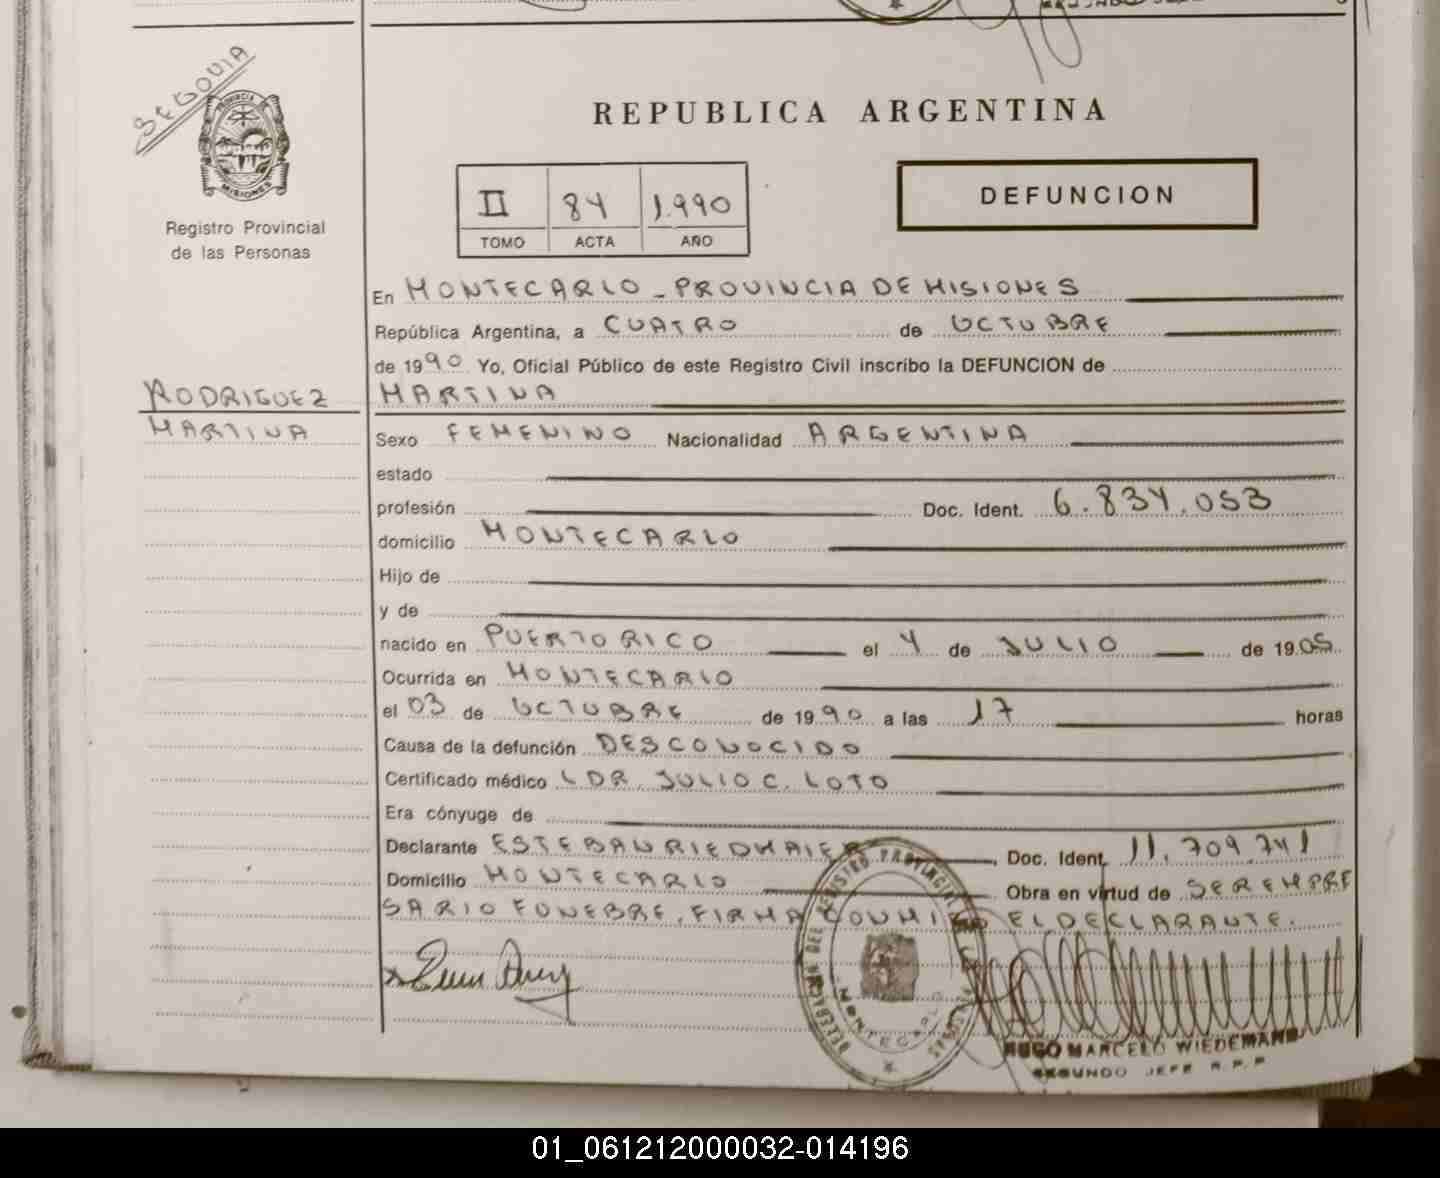 SEGOVIA
PROVINCIA DE
MISIONES
Registro Provincial
de las Personas
REPUBLICA ARGENTINA
II 84 1.990
TOMO ACTA AÑO
DEFUNCION
En MONTECARLO - PROVINCIA DE MISIONES
República Argentina, a CUATRO de OCTUBRE
de 1990 Yo, Oficial Público de este Registro Civil inscribo la DEFUNCION de
RODRIGUEZ
MARTINA
MARTINA
Sexo FEMENINO Nacionalidad ARGENTINA
estado
profesión Doc. Ident. 6.834.053
domicilio MONTECARLO
Hijo de
y de
nacido en PUERTO RICO el 4 de JULIO de 1905
Ocurrida en MONTECARLO
el 03 de OCTUBRE de 1990 a las 17 horas
Causa de la defunción DESCONOCIDO
Certificado médico DR. JULIO C. LOTO
Era cónyuge de
Declarante ESTEBAN RIEDMAIER Doc. Ident. 11.709.741
Domicilio MONTECARLO Obra en virtud de SER EMPRE
SARIO FUNEBRE. FIRMA CONMIGO EL DECLARANTE.
DELEGACION DEL REGISTRO PROVINCIAL DE LAS PERSONAS
MONTECARLO
HUGO MARCELO WIEDEMANN
SEGUNDO JEFE R.P.P
01_061212000032-014196